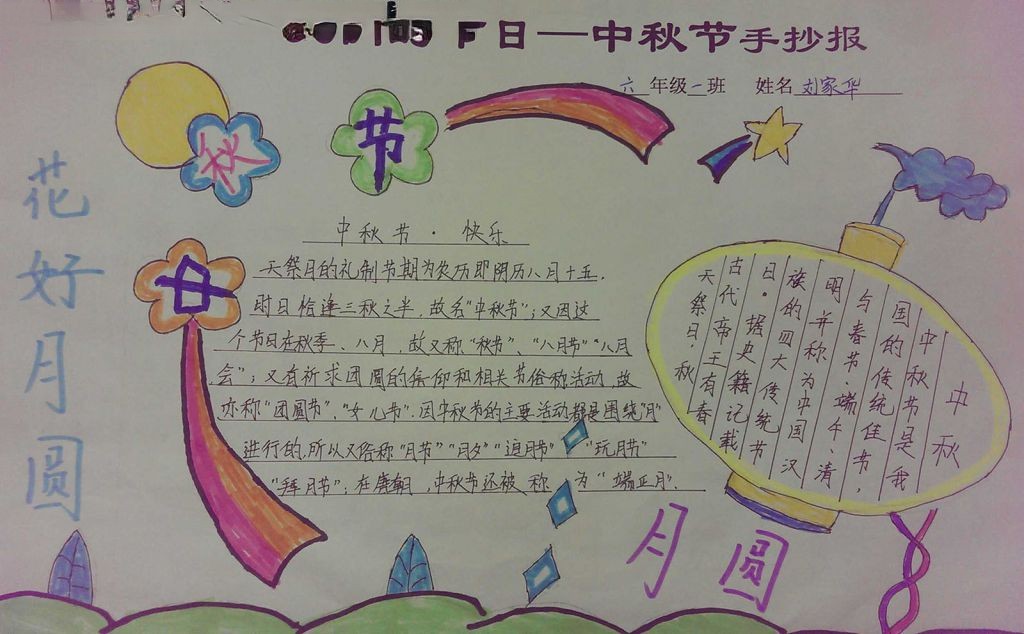 日—中秋节手抄报
六年级一班 姓名 刘家华
秋
节
中
花好月圆
中秋节·快乐
天祭月的礼制节期为农历即阴历八月十五，
时日恰逢三秋之半，故名“中秋节”；又因这
个节日在秋季、八月，故又称“秋节”、“八月节”“八月
会”；又有祈求团圆的信仰和相关节俗称活动，故
亦称“团圆节”、“女儿节”.因中秋节的主要活动都是围绕“月”
进行的，所以又俗称“月节”“月夕”“追月节”“玩月节”
“拜月节”；在唐朝，中秋节还被称为“端正月”.
中秋
中秋节是我
国的传统佳节，
与春节、端午、清
明并称为中国汉
族的四大传统节
日。据史籍记载
古代帝王有春
天祭日，秋
月圆